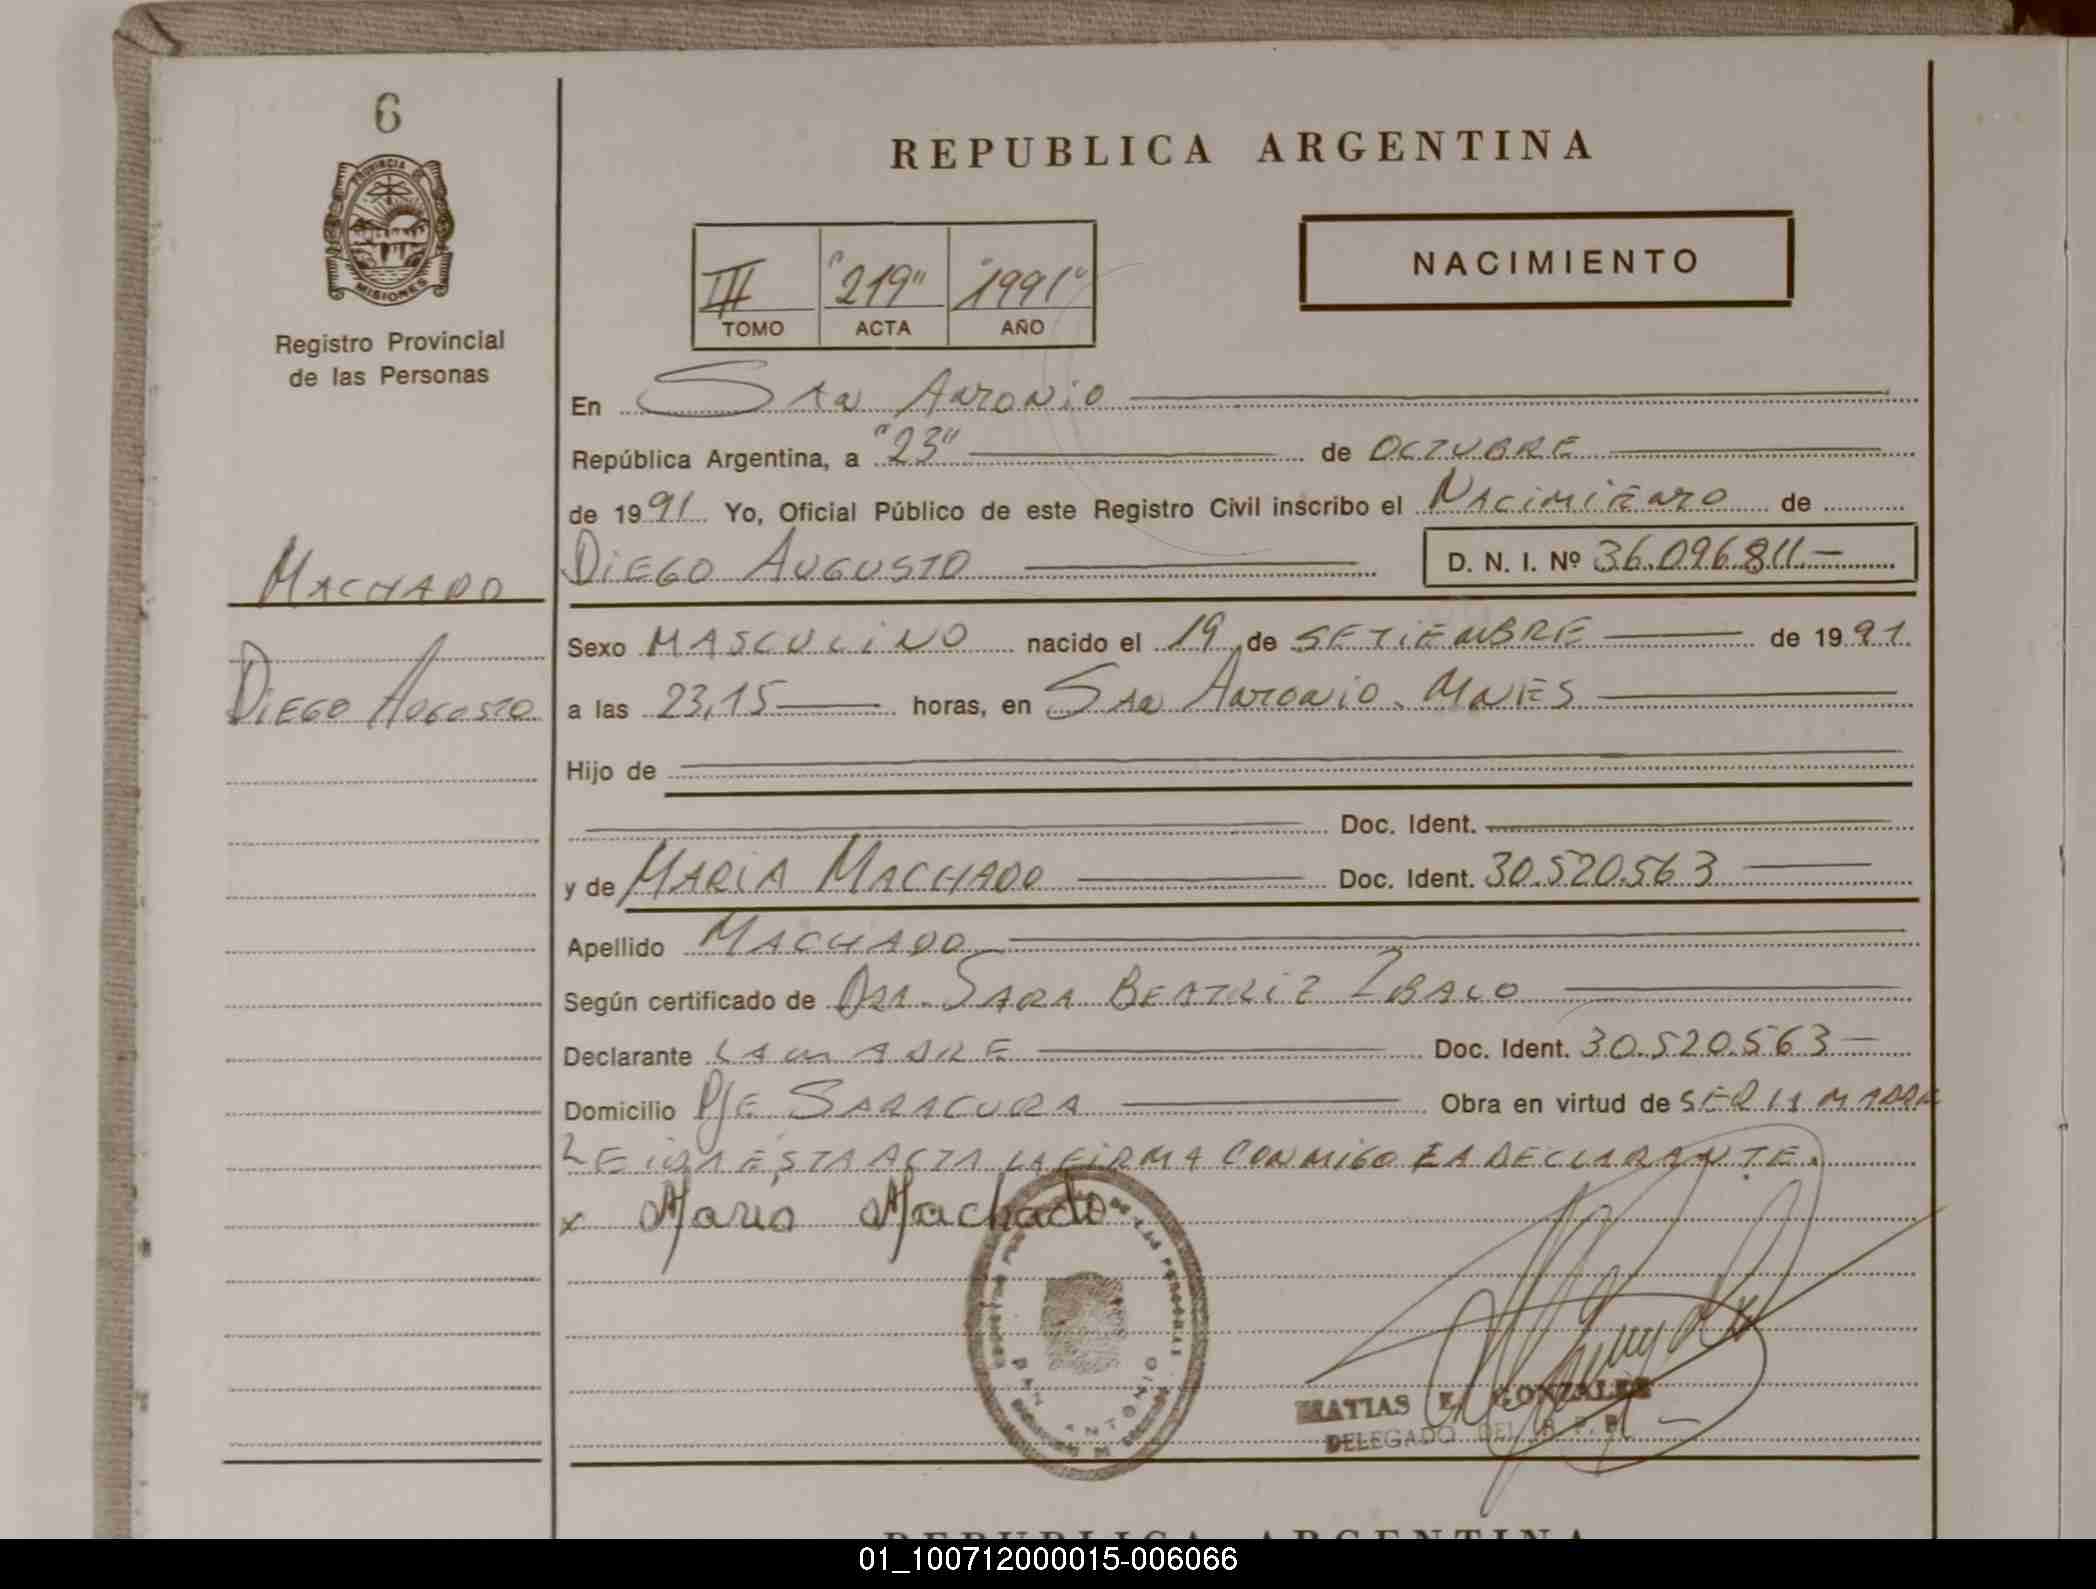 6
PROVINCIA DE
MISIONES
Registro Provincial
de las Personas
MACHADO
DIEGO AUGUSTO
REPUBLICA ARGENTINA
III "219" "1991"
TOMO ACTA AÑO
NACIMIENTO
En SAN ANTONIO
República Argentina, a "23" de OCTUBRE
de 1991 Yo, Oficial Público de este Registro Civil inscribo el NACIMIENTO de
DIEGO AUGUSTO D. N. I. Nº 36.096.811.-
Sexo MASCULINO nacido el 19 de SETIEMBRE de 1991.
a las 23,15 horas, en SAN ANTONIO. MNES
Hijo de
Doc. Ident.
y de MARIA MACHADO Doc. Ident. 30.520.563
Apellido MACHADO
Según certificado de DRA. SARA BEATRIZ
Declarante LA MADRE Doc. Ident. 30.520.563-
Domicilio PJE SARACURA Obra en virtud de SER LA MADRE
LEIDA ESTA ACTA LA FIRMA CONMIGO LA DECLARANTE.
x Maria Machado
DE LAS PERSONAS
SAN ANTONIO
MATIAS E. GONZALEZ
DELEGADO DEL R. P. P.
REPUBLICA ARGENTINA
01_100712000015-006066